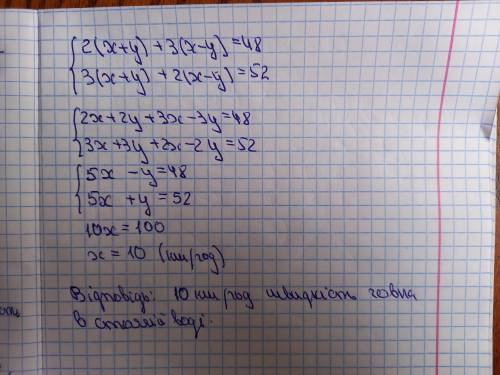 2(x+y)+3(x-y)=48
3(x+y)+2(x-y)=52
2x+2y+3x-3y=48
3x+3y+2x-2y=52
5x -y=48
5x +y=52
10x=100
x=10 (км/год)
Відповідь: 10 км/год швидкість човна
в стоячій воді.